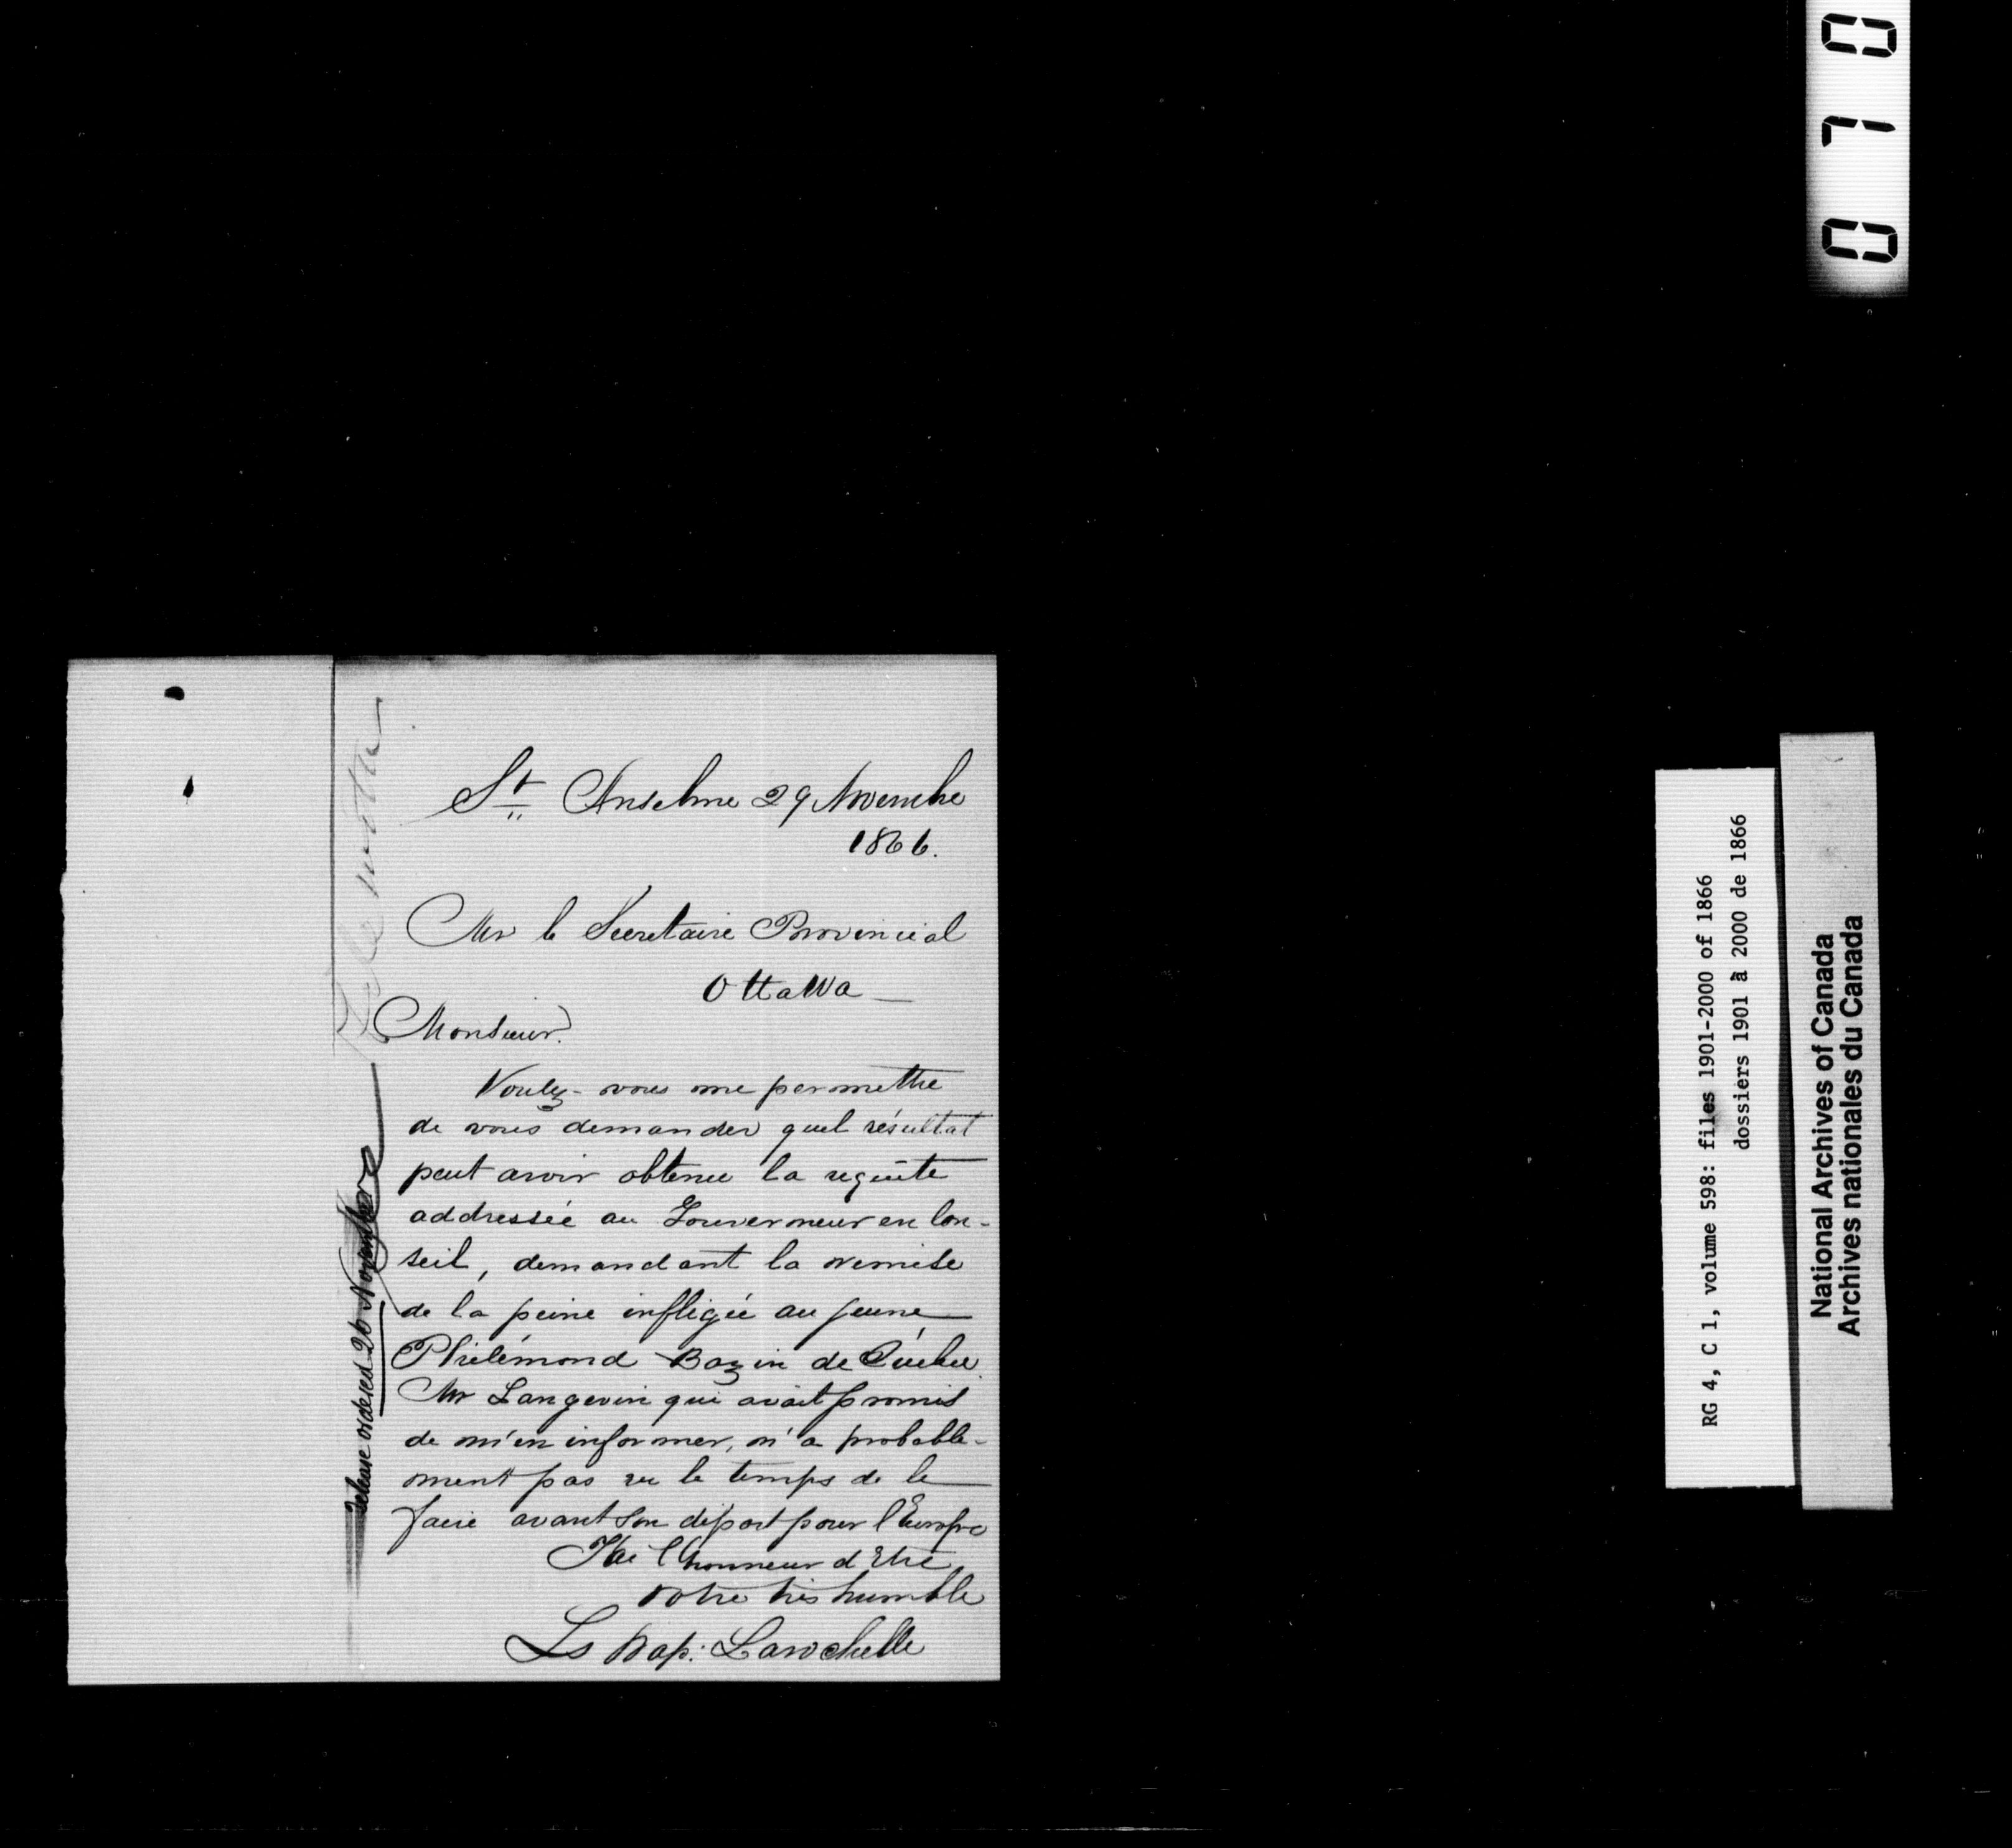 St Anselme 29 Novembre
1866.
Mr le Secretaire Provincial
Ottawa —
Monsieur.
Voulez-vous me permettre
de vous demander quel résultat
peut avoir obtenu la requête
addressée au Gouverneur en Con-
seil, demandant la remise
de la peine infligée au jeune
Philémond Bazin de Québec.
Mr Langevin qui avait promis
de m'en informer, n'a probable-
ment pas eu le temps de le
faire avant son départ pour l'Europe
J'ai l'honneur d'Etre
votre très humble
Ls Bap: Larochelle
release ordered 26 November
0 7 0
RG 4, C 1, volume 598: files 1901-2000 of 1866
dossiers 1901 à 2000 de 1866
National Archives of Canada
Archives nationales du Canada